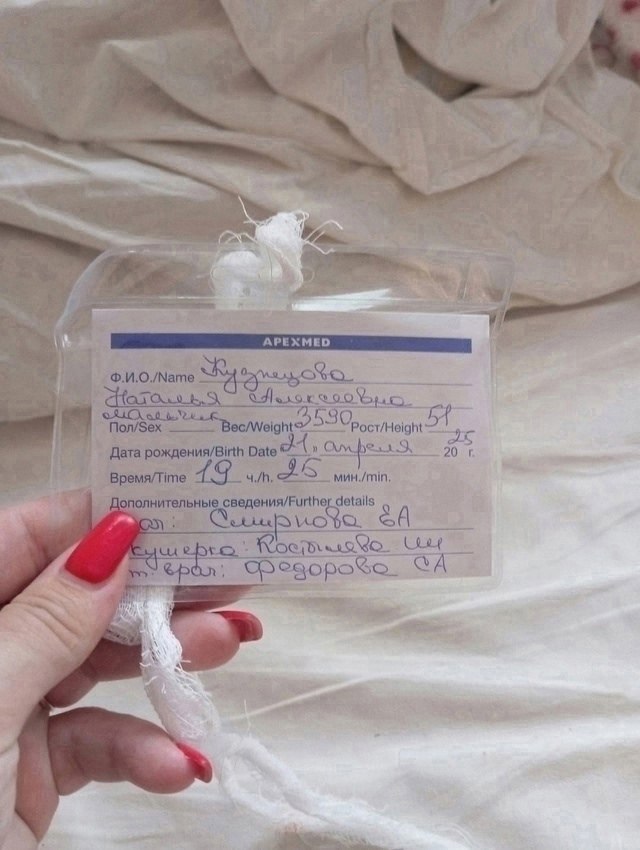 APEXMED
Ф.И.О./Name Кузнецова
Наталья Алексеевна
мальчик
Пол/Sex Вес/Weight 3590 Рост/Height 51
Дата рождения/Birth Date 21 апреля 2025 г.
Время/Time 19 ч./h. 25 мин./min.
Дополнительные сведения/Further details
Смирнова ЕА
кушерка: Костылева
врач: Федорова СА